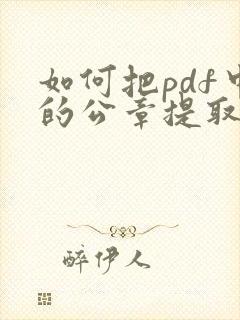 如何把pdf中
的公章提取
醉伊人